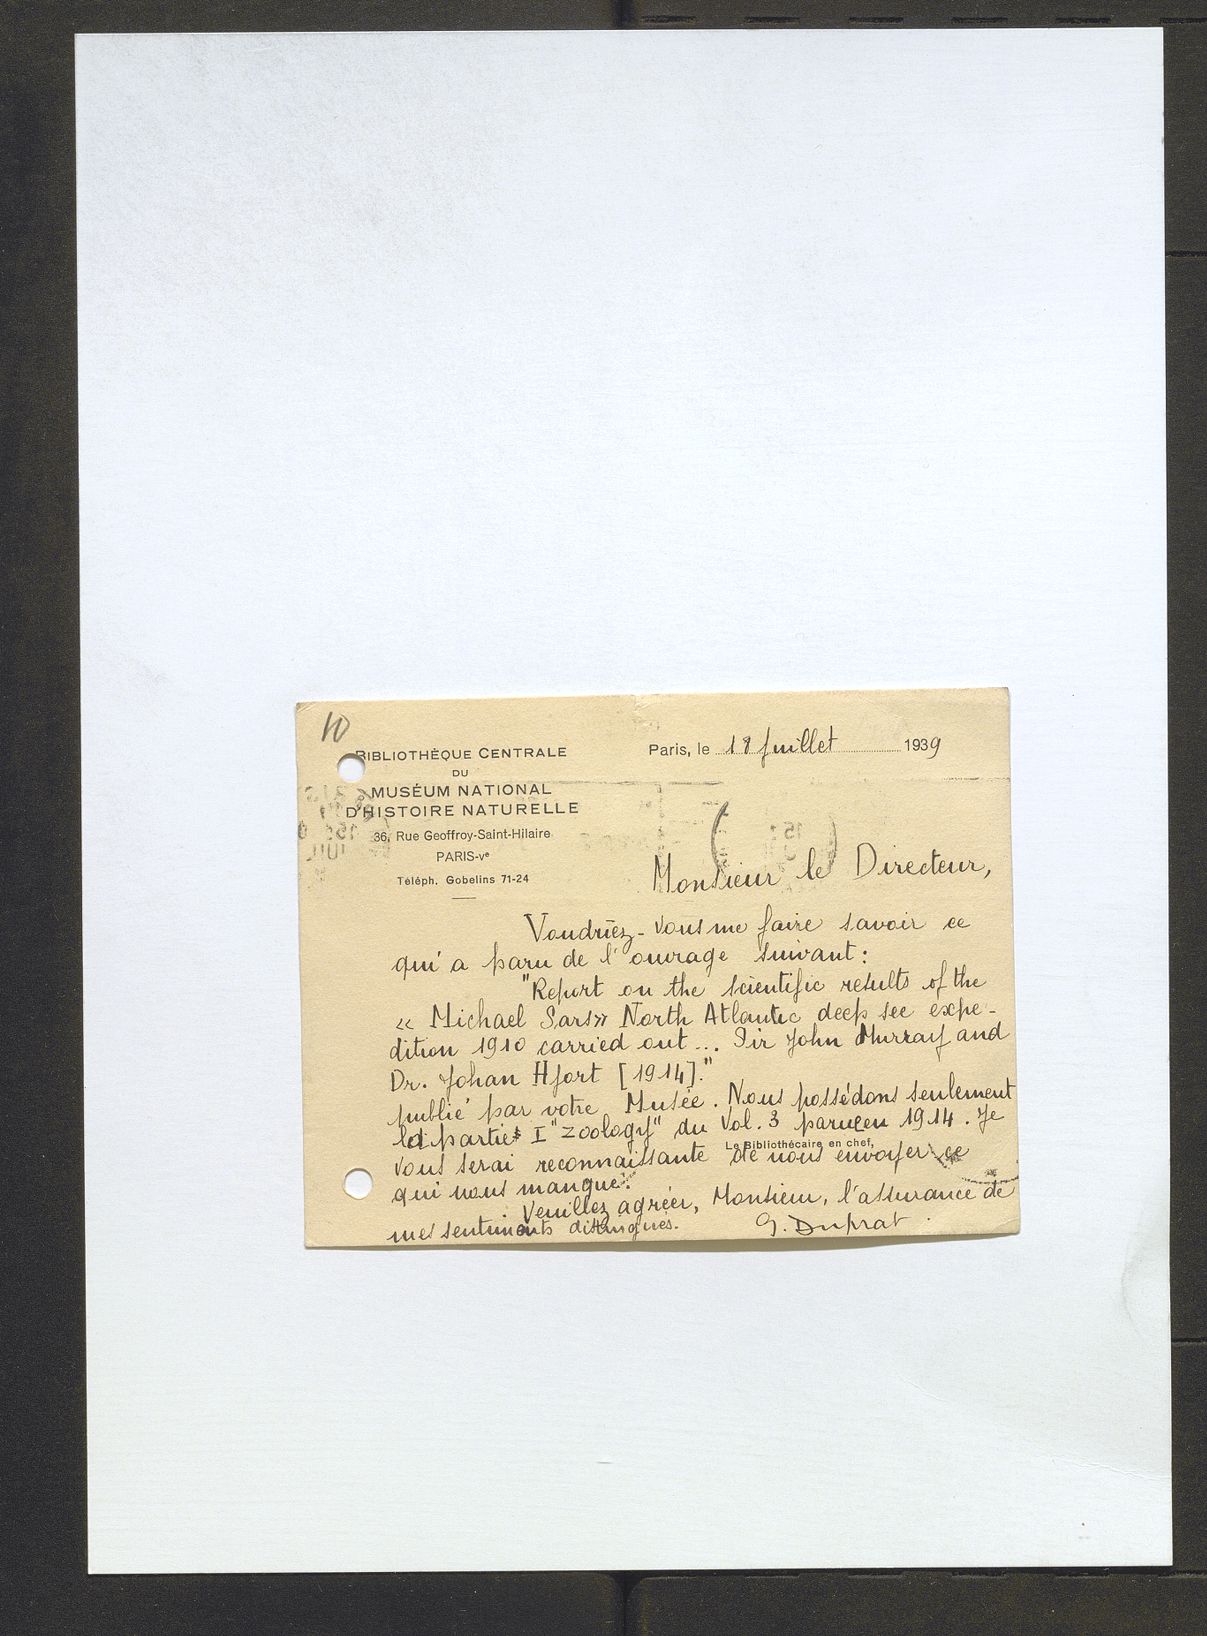 10
BIBLIOTHÈQUE CENTRALE
DU
MUSÉUM NATIONAL
D'HISTOIRE NATURELLE
36, Rue Geoffroy-Saint-Hilaire
PARIS-Ve
Téléph. Gobelins 71-24
Paris, le 18 Juillet 1939
Monsieur le Directeur,
Voudriez-vous me faire savoir ce
qui a paru de l'ouvrage suivant:
"Report on the scientific results of the
« Michael Sars» North Atlantic deep see expe-
dition 1910 carried out... Sir John Murray and
Dr. Johan Hjort [1914]."
publié par votre Musée. Nous possédons seulement
la partie I "Zoology" du Vol. 3 paru en 1914. Je
Le Bibliothécaire en chef,
vous serai reconnaissante de nous envoyer ce
qui nous manque.
Veuillez agréer, Monsieur, l'assurance de
mes sentiments distingués. G. Duprat.